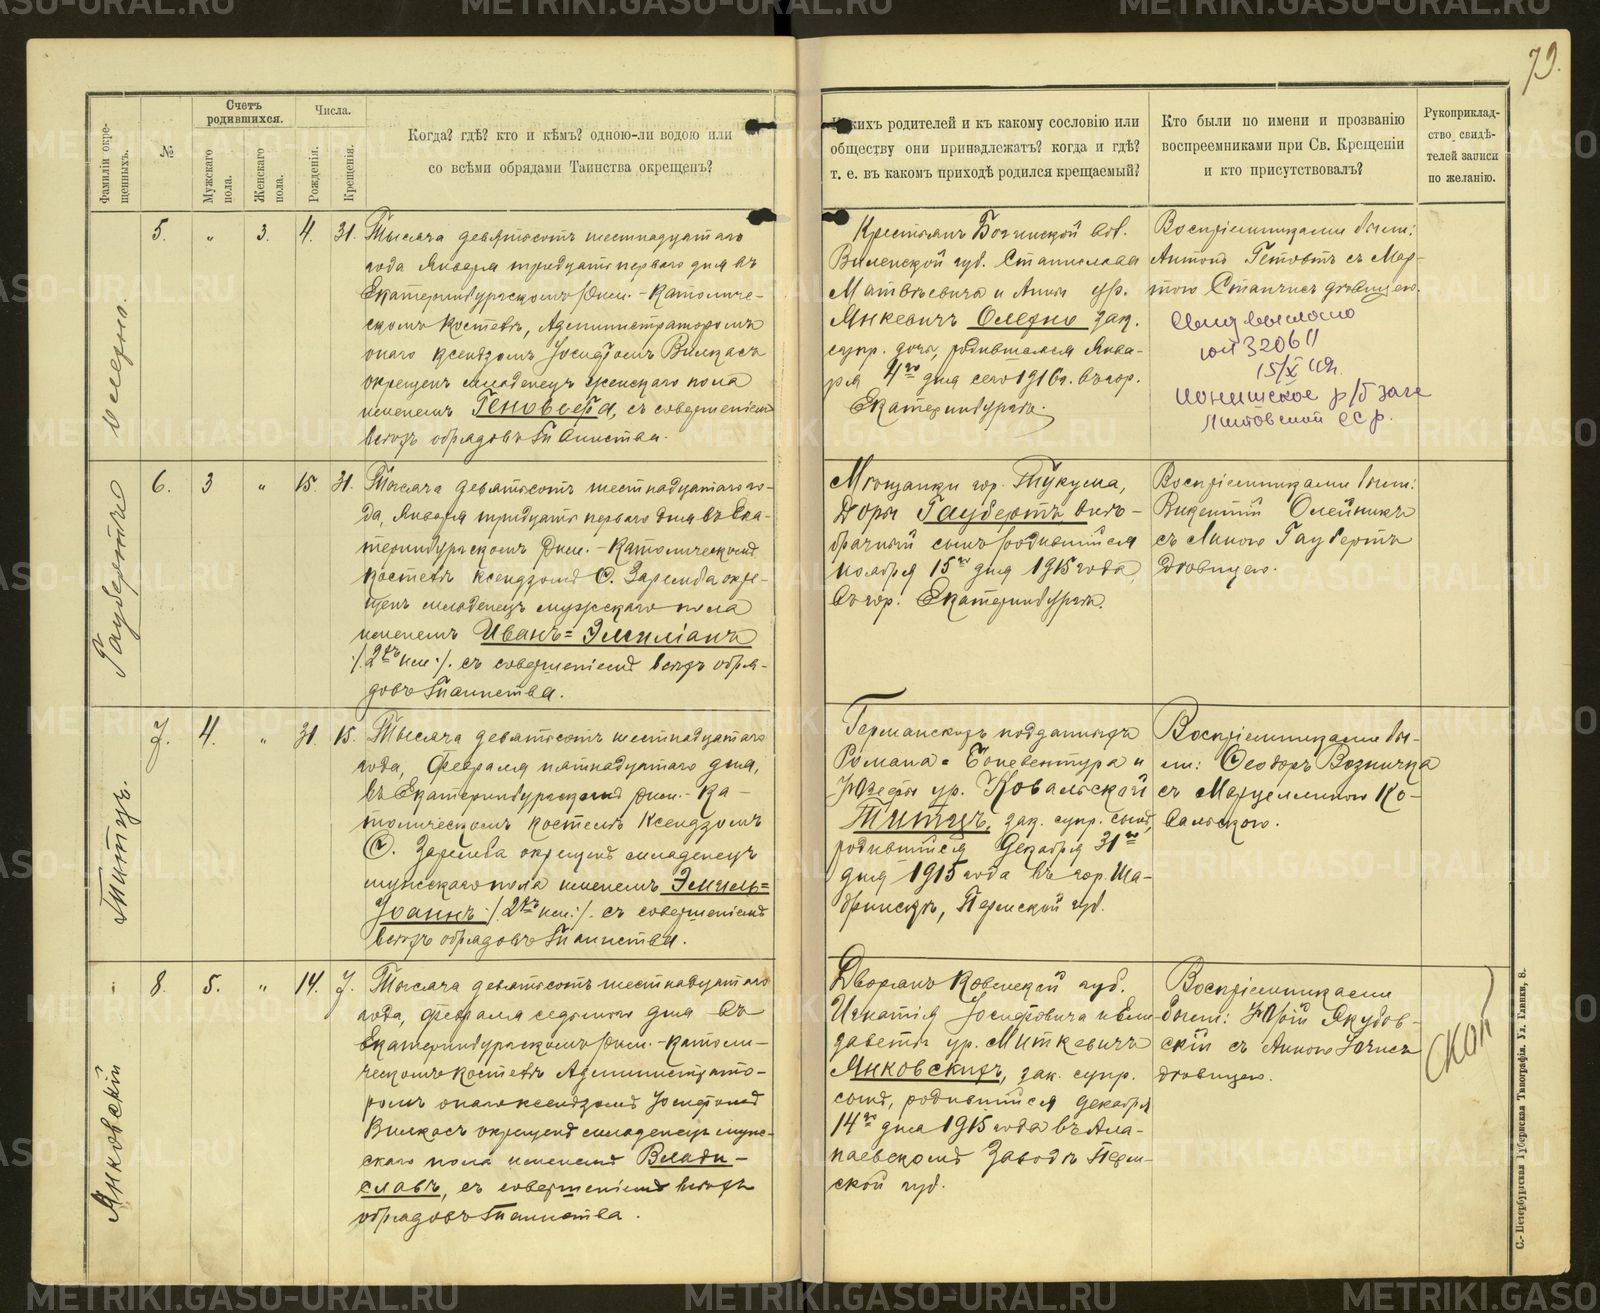 79.
Фамиліи окре-
щенныхъ.
№
Счетъ
родившихся.
Мужскаго
пола.
Женскаго
пола.
Числа.
Рожденія.
Крещенія.
Когда? гдѣ? кто и кѣмъ? одною-ли водою или
со всѣми обрядами Таинства окрещенъ?
Какихъ родителей и къ какому сословію или
обществу они принадлежатъ? когда и гдѣ?
т. е. въ какомъ приходѣ родился крещаемый?
Кто были по имени и прозванію
воспреемниками при Св. Крещеніи
и кто присутствовалъ?
Рукоприклад-
ство свидѣ-
телей записи
по желанію.
Олерно.
5. „ 3. 4. 31.
Тысяча девятьсотъ шестнадцатаго
года Января тридцать перваго дня въ
Екатеринбургскомъ Рим.-Католиче-
скомъ Костелѣ, Администраторомъ
онаго Ксендзомъ Іосифомъ Вилкасъ
окрещенъ младенецъ женскаго пола
именемъ Геновефа, съ совершеніемъ
всѣхъ обрядовъ Таинства.
Крестьянъ Богинской вол.
Виленской губ. Станислава
Матвѣевича и Анны ур.
Янкевичъ Олерно зак.
супр. дочь, родившаяся Янва-
ря 4го дня сего 1916 г. въ гор.
Екатеринбургѣ.
Воспріемниками были:
Антонъ Гетовтъ съ Мар-
тою Станчисъ дѣвицею.
выслано
15/X
р/б загс
Литовской ССР.
Гаубертъ
6. 3 „ 15. 31.
Тысяча девятьсотъ шестнадцатаго го-
да, Января тридцать перваго дня въ Ека-
теринбургскомъ Рим.-Католическомъ
Костелѣ Ксендзомъ Ѳ. Заремба окре-
щенъ младенецъ мужскаго пола
именемъ Иванъ=Эмиліанъ
/:2хъ им:/. съ совершеніемъ всѣхъ обря-
довъ Таинства.
Мѣщанки гор. Тукума,
Доры Гаубертъ внѣ-
брачный сынъ родившійся
ноября 15го дня 1915 года,
въ гор. Екатеринбургѣ.
Воспріемниками были:
Викентій Олейникъ
съ Анною Гаубертъ
дѣвицею.
Титцъ.
7. 4. „ 31. 15.
Тысяча девятьсотъ шестнадцатаго
года, Февраля пятнадцатаго дня,
въ Екатеринбургскомъ Рим.-Ка-
толическомъ Костелѣ Ксендзомъ
Ѳ. Заремба окрещенъ младенецъ
мужскаго пола именемъ Эмиль=
Іоаннъ /:2хъ им:/. съ совершеніемъ
всѣхъ обрядовъ Таинства.
Германскихъ подданныхъ
Романа=Боневентура и
Юзефы ур. Ковальской
Титцъ, зак. супр. сынъ,
родившійся Декабря 31го
дня 1915 года въ гор. Ша-
дринскѣ, Пермской губ.
Воспріемниками бы-
ли: Ѳеодоръ Возничка
съ Марцеллиною Ко-
вальскою.
Янковскій
8. 5. „ 14. 7.
Тысяча девятьсотъ шестнадцатаго
года, Февраля седьмого дня въ
Екатеринбургскомъ Рим.-Католи-
ческомъ Костелѣ Администрато-
ромъ онаго Ксендзомъ Іосифомъ
Вилкасъ окрещенъ младенецъ муж-
скаго пола именемъ Влади-
славъ, съ совершеніемъ всѣхъ
обрядовъ Таинства.
Дворянъ Ковенской губ.
Игнатія Іосифовича и Ели-
заветы ур. Миткевичъ
Янковскихъ, зак. супр.
сынъ, родившійся декабря
14го дня 1915 года въ Ала-
паевскомъ Заводѣ Перм-
ской губ.
Воспріемниками
были: Юрій Якубов-
скій съ Анною
дѣвицею.
С.-Петербургская Губернская Типографія. Ул. Глинки, 8.
METRIKI.GASO-URAL.RU